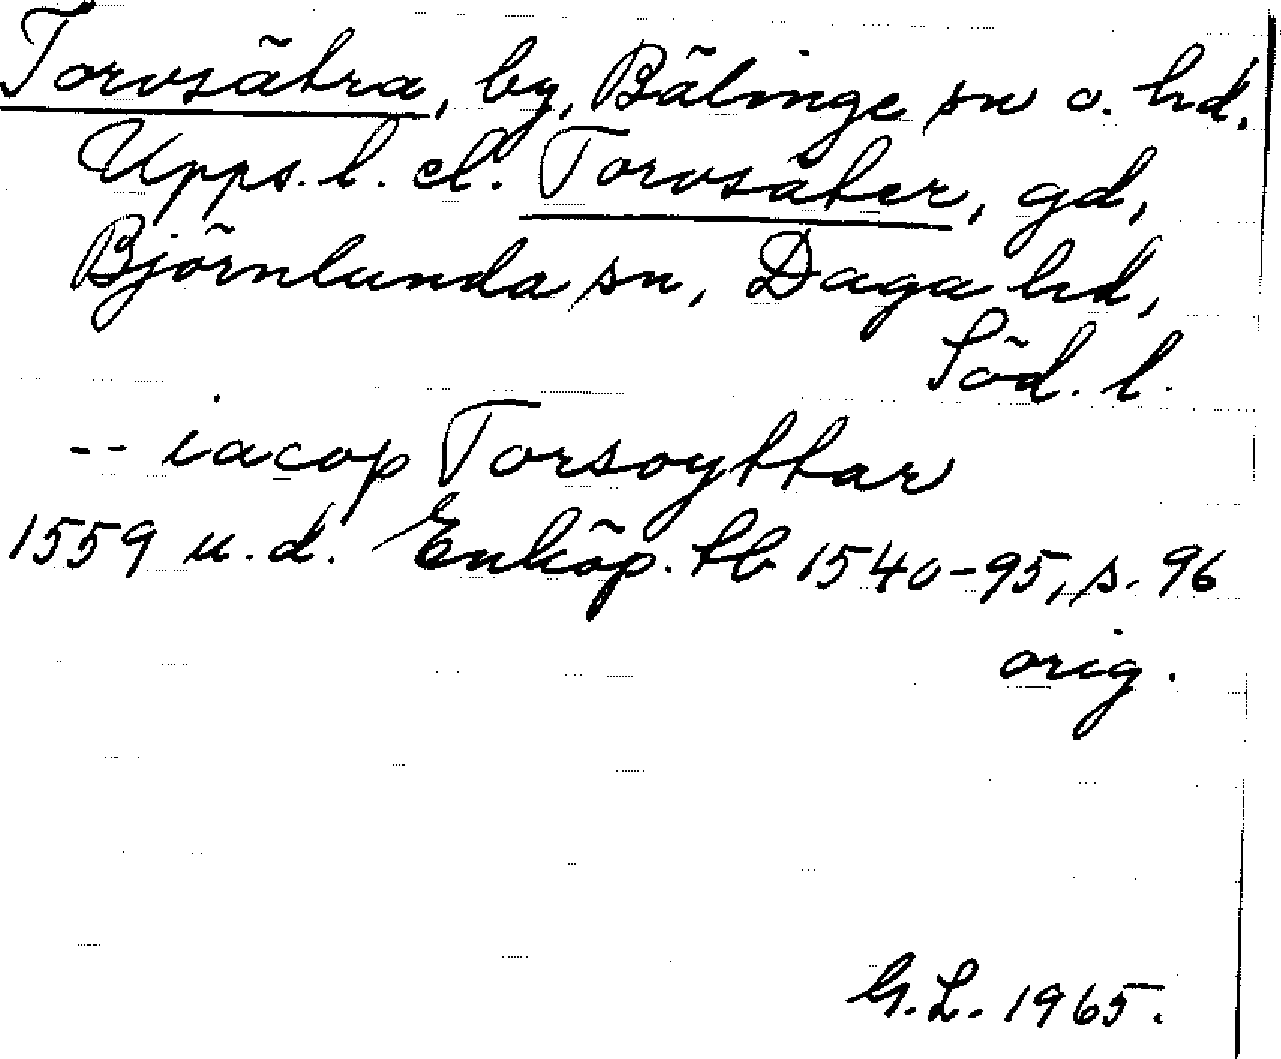 Torvsätra, by, Bälinge sn o. hd.
Upps. l. el. Torvsäter, gd,
Björnlunda sn, Daga hd,
Söd. l.
-- iacop Torsøyttar
1559 u. d. Enköp. tb 1540-95, s. 96
orig.
G.L. 1965.